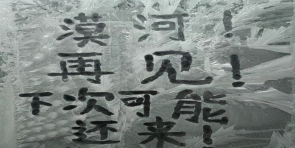 漠河！
再见！
下次可能
还来！